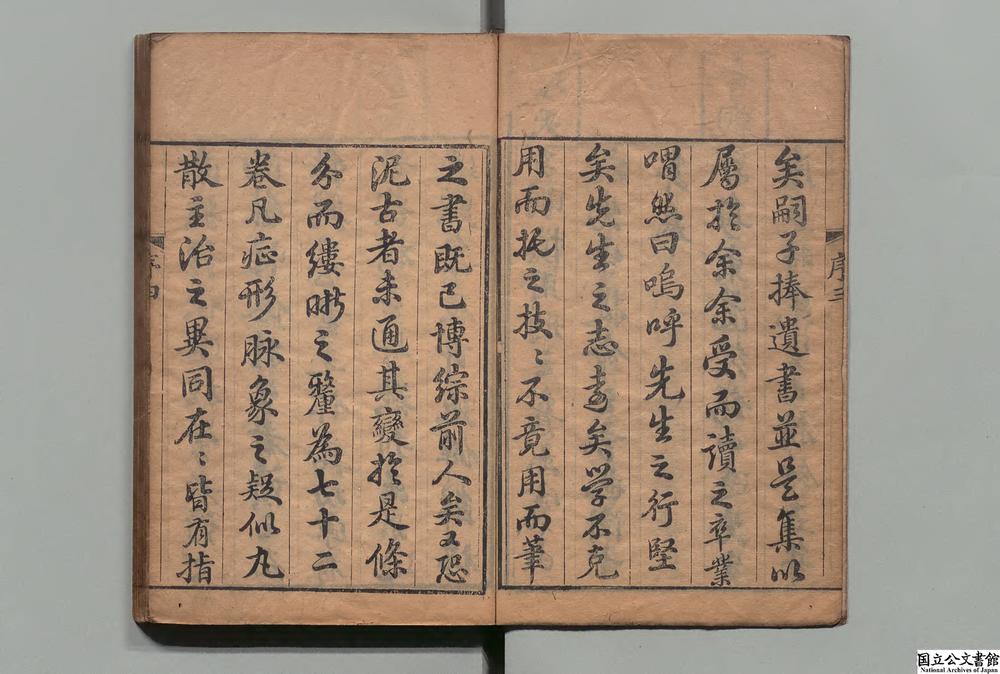 矣嗣子捧遺書並是集以
屬於余余受而讀之卒業
喟然曰嗚呼先生之行堅
矣先生之志遠矣學不克
用而托之技〻不竟用而筆
序三
之書既已博綜前人矣又恐
泥古者未通其變於是條
分而縷晰之釐為七十二
卷凡症形脉象之疑似丸
散主治之異同在〻皆有指
序四
国立公文書館
National Archives of Japan